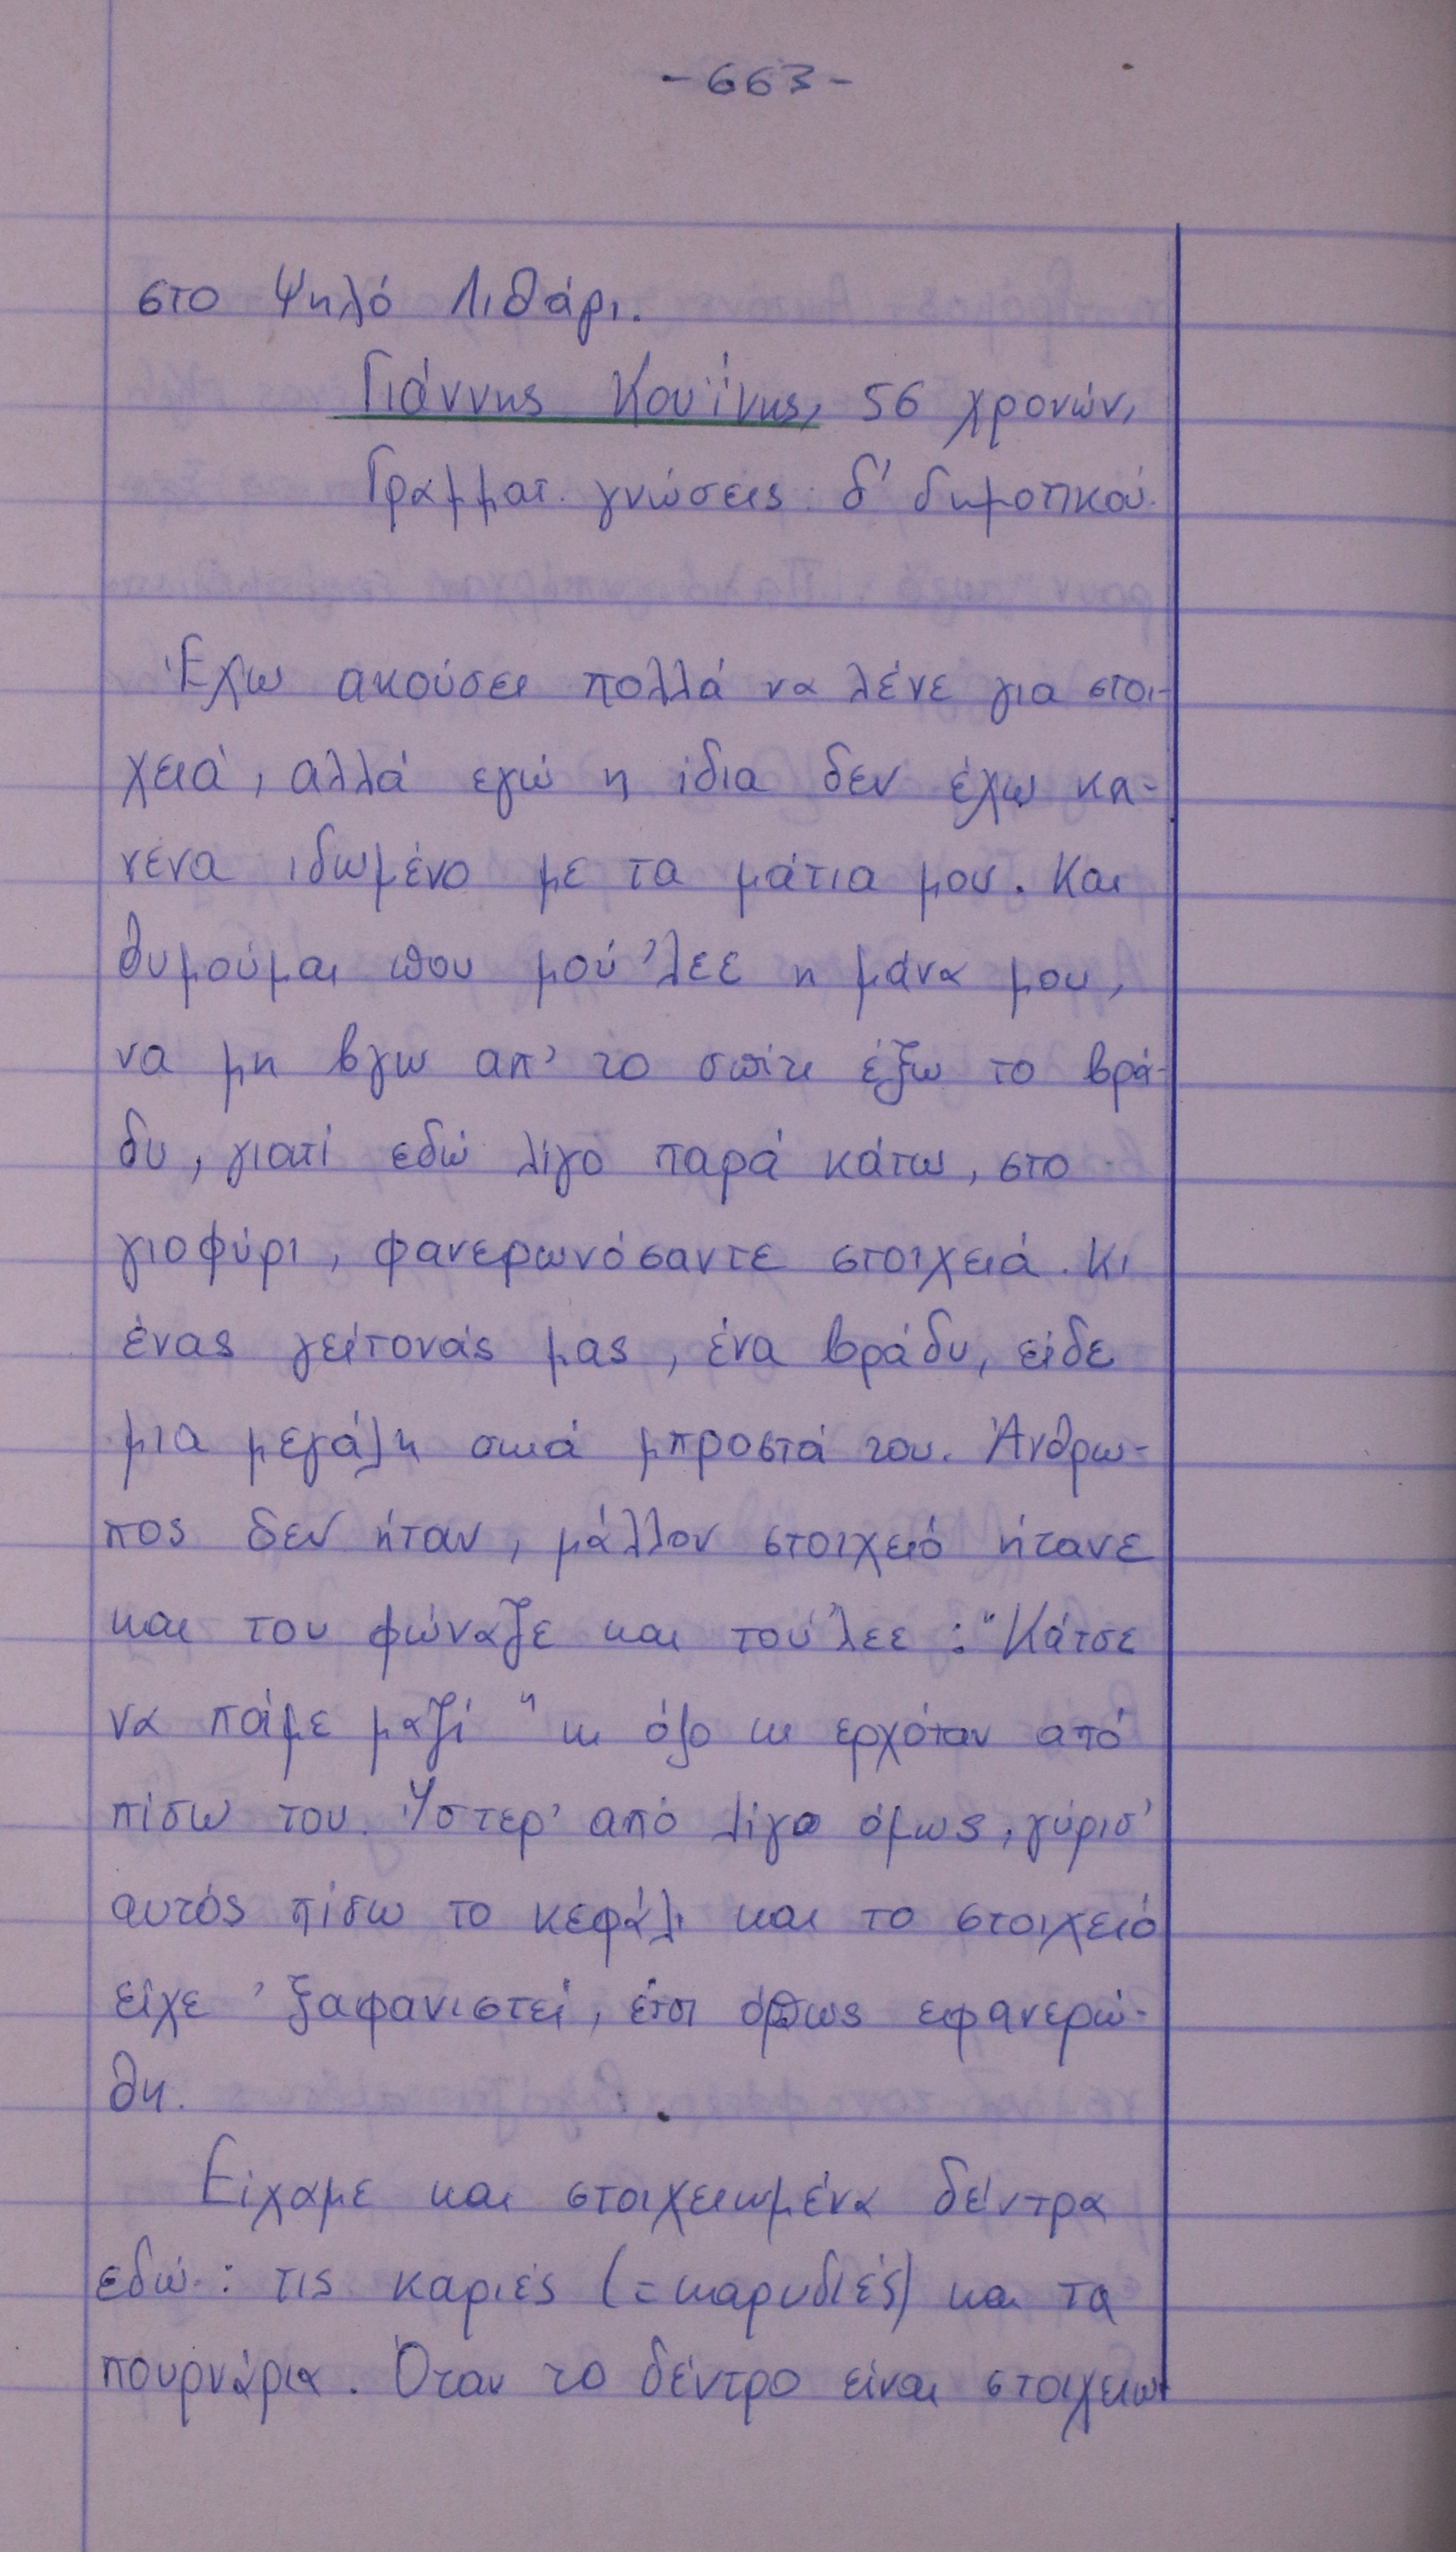 -663-
στο Ψηλό Λιθάρι.
Γιάννης Κουΐνης, 56 χρονών,
Γραμματ. γνώσεις: δ' δημοτικού.
Έχω ακούσει πολλά να λένε για στοι-
χειά, αλλά εγώ η ίδια δεν έχω κα-
νένα ιδωμένο με τα μάτια μου. Και
θυμούμαι που μού 'λεε η μάνα μου,
να μη βγω απ' το σπίτι έξω το βρά-
δυ, γιατί εδώ λίγο παρά κάτω, στο
γιοφύρι, φανερωνόσαντε στοιχειά. Κι
ένας γείτονάς μας, ένα βράδυ, είδε
μια μεγάλη σκιά μπροστά του. Άνθρω-
πος δεν ήταν, μάλλον στοιχειό ήτανε
και του φώναζε και τού 'λεε: "Κάτσε
να πάμε μαζί" κι όλο κι ερχόταν από
πίσω του. Ύστερ' από λίγο όμως, γύρισ'
αυτός πίσω το κεφάλι και το στοιχειό
είχε 'ξαφανιστεί, έτσι όπως εφανερώ-
θη.
Είχαμε και στοιχειωμένα δέντρα
εδώ: τις καριές (=καρυδιές) και τα
πουρνάρια. Όταν το δέντρο είναι στοιχειω-